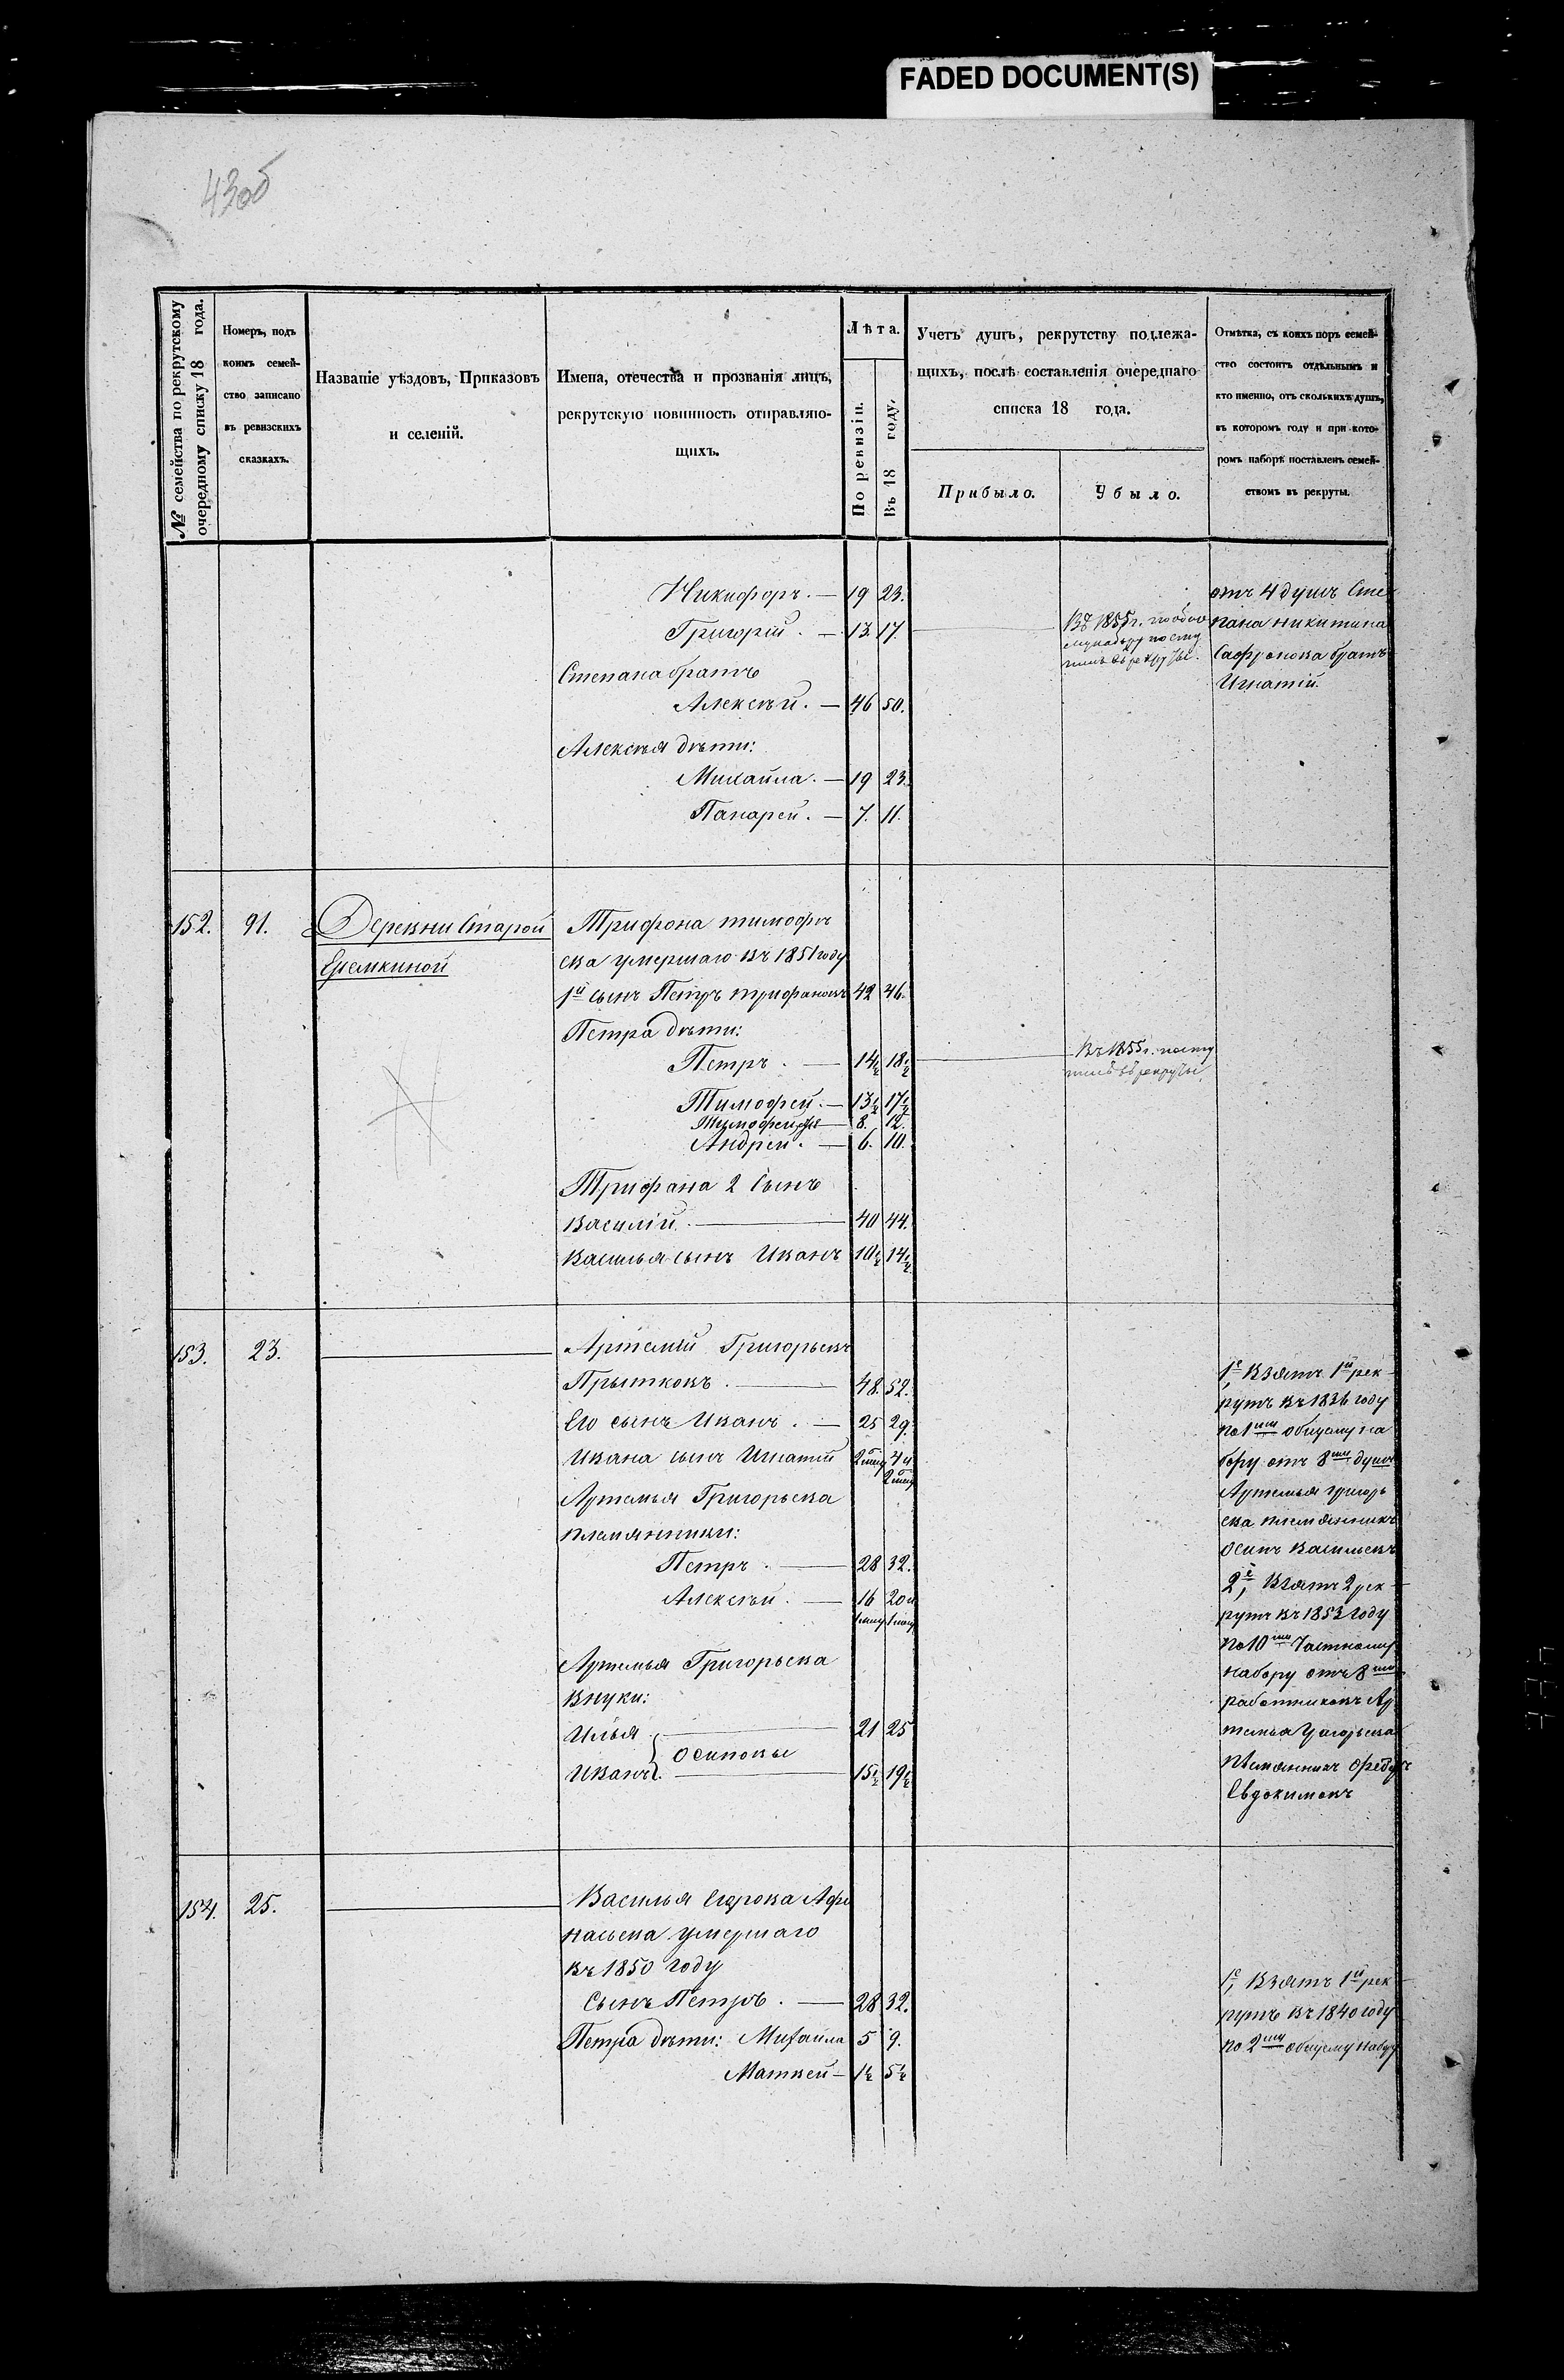 FADED DOCUMENT(S)
43об
№ семейства по рекрутскому
очередному списку 18 года.
Номеръ, подъ
коимъ семей-
ство записано
въ ревизскихъ
сказкахъ.
Названіе уѣздовъ, Приказовъ
и селеній.
Имена, отечества и прозванія лицъ,
рекрутскую повинность отправляю-
щихъ.
Лѣта.
По ревизіи.
Въ 18 году.
Учетъ душъ, рекрутству подлежа-
щихъ, послѣ составленія очереднаго
списка 18 года.
Прибыло.
Убыло.
Отмѣтка, съ коихъ поръ семей-
ство состоитъ отдѣльнымъ и
кто именно, отъ сколькихъ душъ,
въ которомъ году и при кото-
ромъ наборѣ поставленъ семей-
ствомъ въ рекруты.
Никифоръ. — 19 23.
Григорій. — 13. 17.
Въ 1855 г. посту
пилъ въ рекруты.
отъ 4 душъ Сте
пана никитина
Сафронова братъ
Игнатій.
Степана братъ
Алексѣй. — 46 50.
Алексѣя дѣти:
Михайла. — 19 23.
Панарей. — 7. 11.
152. 91. Деревни Старой
Еремкиной
Трифона тимофѣ
ева умершаго въ 1851 году
1й сынъ Петръ трифановъ 42 46.
Петра дѣти:
Петръ. — 14½ 18½
Въ 1855 г. посту
пилъ въ рекруты.
Тимофей. — 13½ 17½
Тимофей — 8. 12.
Андрей. — 6. 10.
Трифана 2 Сынъ
Василій. — 40 44.
Василья сынъ Иванъ 10½ 14½
153. 23. Артемій Григорьевъ
Прытковъ. — 48. 52.
Его сынъ Иванъ. — 25 29.
Ивана сынъ Игнатій
Артемья Григорьева
племянники:
Петръ. — 28 32.
Алексѣй. — 16 20 и
Артемья Григорьева
внуки:
Илья — 21 25
Осиповы
Иванъ. — 15½ 19½
1е, Взятъ 1й рек-
рутъ въ 1836 году
по 1му общему на
бору отъ 8ми душъ
Артемья григорь
ева племянникъ
осипъ васильевъ
2е, Взятъ 2 рек-
рутъ въ 1853 году
по 10му Частному
набору отъ 8ми
работниковъ Ар
темья Григорьева
племянникъ Федоръ
Евдокимовъ
154. 25. Василья Егорова Афо
насьева умершаго
въ 1850 году
Сынъ Петръ. — 28 32.
Петра дѣти: Михайла 5 9.
Матвей — 1½ 5½
1е, Взятъ 1й рек-
рутъ въ 1840 году
по 2му общему набору